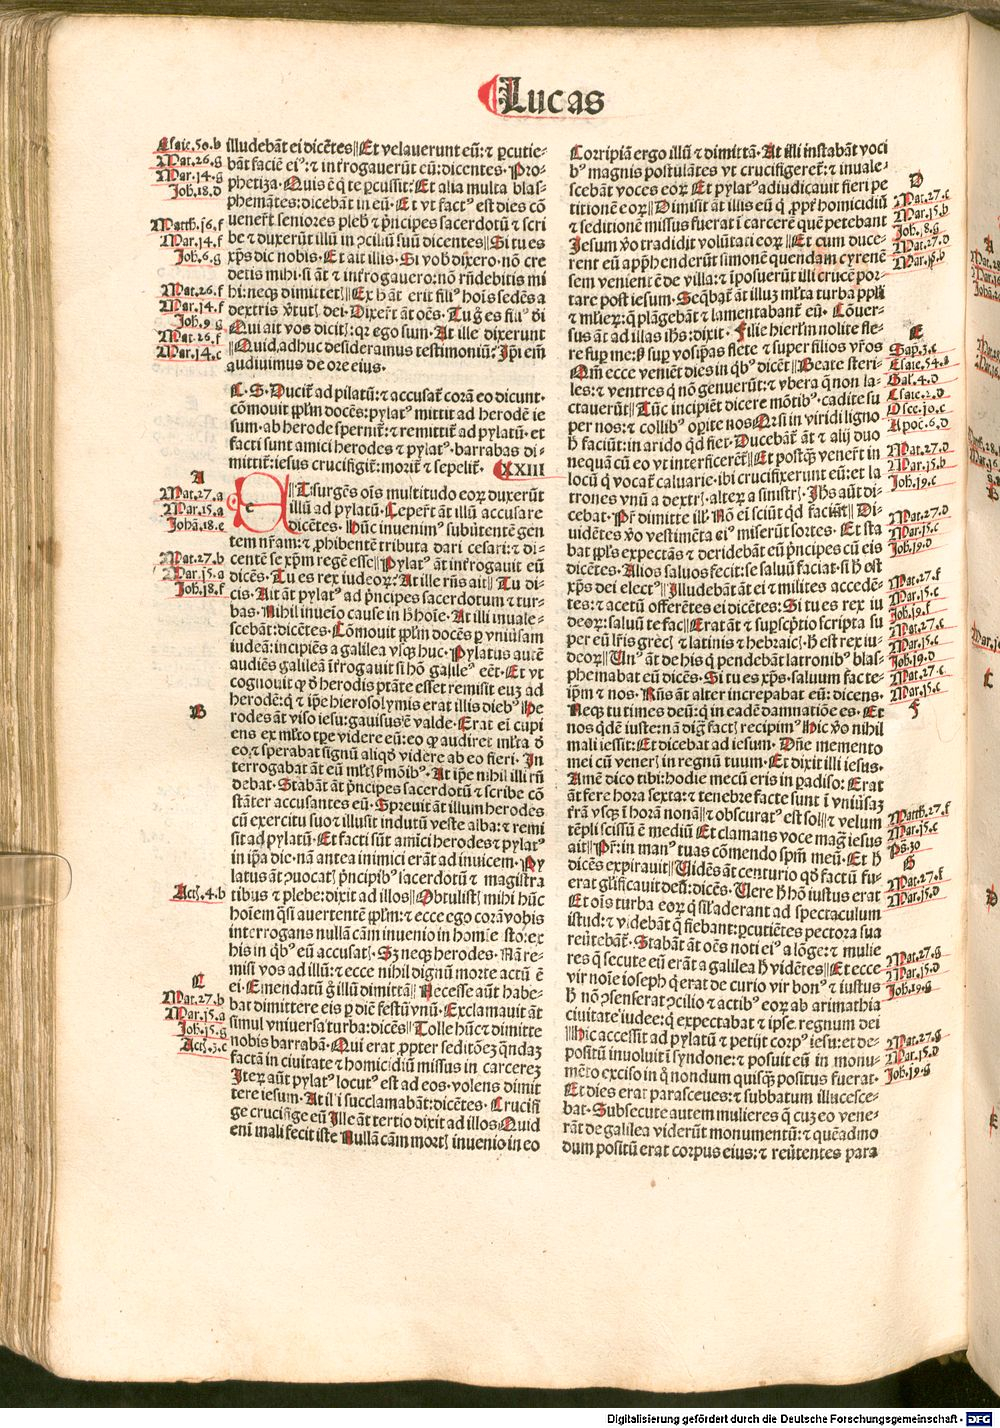 Lucas
Esaie.50.b
Mar.26.g
Mar.14.g
Joh.18.d
Matth.16.f
Mar.14.f
Joh.6.g
Mat.26.f
Mar.14.f
Joh.9.g
Mat.26.f
Mar.14.c
illudebāt ei dicētes Et velauerunt eū: ⁊ ꝑcutie⸗
bāt faciē eiꝰ: ⁊ intˀrogauerūt eū: dicentes. Pro⸗
phetiza. Quis ē q̇ te ꝑcussit: Et alia multa blas⸗
phemātes: dicebāt in eū. Et vt factꝰ est dies cō
uenerr̄t seniores pleb̄ ⁊ p̄ncipes sacerdotū ⁊ scri
be ⁊ duxerūt illū in ꝯciliū suū dicentes Si tu es
xp̄s dic nobis. Et ait illis. Si vob̄ dixero. nō cre
detis mihi. si āt ⁊ intˀrogauero: nō rn̄debitis mi
hi: neq; dimittet Ex h̄ āt erit filiꝰ hoīs sedēs a
dextris v̄tut dei. Dixer̄t āt oēs. Tu g̊ es filiꝰ di
Qui ait vos dicit: qꝛ ego sum. At ille dixerunt
Quid adhuc desideramus testimoniū: Ip̄i em̄
audiuimus de ore eius.
C. S. Ducit̄ ad pilatū: ⁊ accusat̄ corā eo dicunt.
cōmouit pplm̄ docēs: pylatꝰ mittit ad herodē ie
sum. ab herode spernit̄: ⁊ remittit̄ ad pylatū. et
facti sunt amici herodes ⁊ pylatꝰ. barrabas di⸗
mittit̄: iesus crucifigit̄: morit̄ ⁊ sepelit̄. XXIII
A
Mat.27.a
Mar.15.a
Johā.18.e
Mat.27.b
Mar.15.a
Joh.18.f
B
Act.4.b
C
Mat.27.b
Mar.15.a
Joh.15.g
Act.3.c
ETsurgēs oīs multitudo eoꝝ duxerūt
illū ad pylatū. Ceper̄t āt illū accusare
dicētes. Hūc inuenimꝰ subūtentē gen
tem nr̄am: ⁊ ꝓhibentē tributa dari cesari: ⁊ di⸗
centē se xp̄m regē esse Pylatꝰ āt intˀrogauit eū
dicēs. Tu es rex iudeoꝝ: At ille rn̄s ait Tu di⸗
cis. Ait āt pylatꝰ ad p̄ncipes sacerdotum ⁊ tur⸗
bas. Nihil inuenio cause in h̄ hoīe. At illi inuale⸗
scebāt: dicētes. Cōmouit pplm̄ docēs ꝑ vniūsam
iudeā: incipiēs a galilea vsq; huc. Pylatus autē
audiēs galileā intˀrogauit si hō galileꝰ eēt. Et vt
cognouit qꝫ d̄ herodis ptāte esset remisit euꝫ ad
herodē: q̇ ⁊ ip̄e hierosolymis erat illis diebꝰ He
rodes āt viso iesu: gauisus ē valde. Erat ei cupi
ens ex ml̄to tꝑe videre eū: eo ꝙ audiret ml̄ta d̄
eo: ⁊ sperabat signū aliqd̓ videre ab eo fieri. In
terrogabat āt eū ml̄t̄ s̓mōibꝰ. At ip̄e nihil illi rn̄
debat. Stabāt āt p̄ncipes sacerdotū ⁊ scribe cō
stāter accusantes eū. Spreuit āt illum herodes
cū exercitu suo: ⁊ illusit indutū veste alba: ⁊ remi
sit ad pylatū. Et facti sūt amici herodes ⁊ pylatꝰ
in ip̄a die. nā antea inimici erāt ad inuicem. Py
latus āt ꝯuocat̄ p̄ncipibꝰ sacerdotū ⁊ magistra
tibus ⁊ plebe: dixit ad illos Obtulist̄ mihi hūc
hoīem qsi auertentē pplm̄: ⁊ ecce ego corā vobis
interrogans nullā cām inuenio in homīe isto: ex
his in q̇bꝰ eū accusat̄. Sꝫ neq; herodes. Nā re⸗
misi vos ad illū: ⁊ ecce nihil dignū morte actū ē
ei. Emendatū g̊ illū dimittā Necesse aūt habe⸗
bat dimittere eis ꝑ diē festū vnū. Exclamauit āt
simul vniuersa turba: dicēs Tolle hūc ⁊ dimitte
nobis barrabā. Qui erat ꝓpter seditōeꝫ q̄ndaꝫ
factā in ciuitate ⁊ homicidiū missus in carcereꝫ
Iteꝝ aūt pylatꝰ locutꝰ est ad eos. volens dimit
tere iesum. At illi succlamabāt: dicētes. Crucifi
ge crucifige eū Ille āt tertio dixit ad illos Quid
eni mali fecit iste Nullā cām mort̄ inuenio in eo
Corripiā ergo illū ⁊ dimittā. At illi instabāt voci
bꝰ magnis postulātes vt crucifigeret̄: ⁊ inuale⸗
scebāt voces eoꝝ Et pylatꝰ adiudicauit fieri pe
titionē eoꝝ Dimisit āt illis eū q̇ ꝓpt̄ homicidiū
⁊ seditionē missus fuerat ī carcerē quē petebant
Iesum v̊o tradidit volūtati eoꝝ Et cum duce⸗
rent eū app̄henderūt simonē quendam cyrenē
sem venientē de villa: ⁊ īposuerūt illi crucē por⸗
tare post iesum. Seq̄bat̄ āt illuꝫ ml̄ta turba ppl̄i
⁊ ml̓ieꝝ: q̄ plāgebāt ⁊ lamentabant̄ eū. Cōuer⸗
sus āt ad illas ih̄s: dixit. Filie hierl̄m nolite fle⸗
re suꝑ me: s; suꝑ vosip̄as flete ⁊ super filios vr̄os
Qm̄ ecce veniēt dies in q̇bꝰ dicēt Beate steri⸗
les: ⁊ ventres q̇ nō genuerūt: ⁊ vbera q̄ non la⸗
ctauerūt Tūc incipiēt dicere mōtibꝰ. cadite su
per nos: ⁊ collibꝰ oꝑite nos Qꝛ si in viridi ligno
h̄ faciūt: in arido qd̓ fiet. Ducebāt̄ āt ⁊ alij duo
nequā cū eo vt interficerēt̄ Et postq̄ꝫ vener̄t in
locū q̇ vocat̄ caluarie. ibi crucifixerunt eū: et la
trones vnū a dextr̄. alteꝝ a sinistr̄. Ih̄s aūt di⸗
cebat. Pr̄ dimitte ill. Nō ei sciūt qd̓ faciūt Di⸗
uidētes v̊o vestimēta eiꝰ miserūt sortes. Et sta
bat ppl̄s expectās ⁊ deridebāt eū p̄ncipes cū eis
dicētes. Alios saluos fecit: se saluū faciat. si h̄ est
xp̄s dei electꝰ Illudebāt āt ei ⁊ milites accedē⸗
tes: ⁊ acetū offerētes ei dicētes: Si tu es rex iu
deoꝝ: saluū te fac Erat āt ⁊ suꝑsc̄ptio scripta su
per eū lr̄is grec̄ ⁊ latinis ⁊ hebraic̄: h̄ est rex iu⸗
deoꝝ Unꝰ āt de his q̇ pendebāt latronibꝰ blas⸗
phemabat eū dicēs. Si tu es xp̄s. saluum fac te⸗
ip̄m ⁊ nos. Rn̄s āt alter increpabat eū: dicens.
Neq; tu times deū: q̇ in eadē damnatiōe es. Et
nos qdē iuste: nā dig̃ fact̄ recipimꝰ Hic v̊o nihil
mali iessit: Et dicebat ad iesum. Dn̄e memento
mei cū vener̄ in regnū tuum. Et dixit illi iesus.
Amē dico tibi: hodie mecū eris in ꝑadiso: Erat
āt fere hora sexta: ⁊ tenebre facte sunt ī vniūsaꝫ
tr̄rā vsq; ī horā nonā ⁊ obscuratꝰ est sol ⁊ velum
tēpli scissū ē mediū Et clamans voce mag̃ iesus
ait Pr̄: in manꝰ tuas cōmendo spm̄ meū. Et h̄
dicēs expirauit Uidēs āt centurio qd̓ factū fu⸗
erat gl̄ificauit deū: dicēs. Uere h̄ hō iustus erat
Et oīs turba eoꝝ q̇ sil̓ aderant ad spectaculum
istud: ⁊ videbāt q̄ fiebant: ꝑcutiētes pectora sua
reūtebāt̄. Stabāt āt oēs noti eiꝰ a lōge: ⁊ mulie
res q̄ secute eū erāt a galilea h̄ vidētes Et ecce
vir noīe ioseph q̇ erat de curio vir bonꝰ ⁊ iustus
h̄ nō ꝯsenserat ꝯcilio ⁊ actibꝰ eoꝝ ab arimathia
ciuitate iudee: q̇ expectabat ⁊ ipse regnum dei
Hic accessit ad pylatū ⁊ petijt corpꝰ iesu: et de⸗
positū inuoluit ī syndone: ⁊ posuit eū in monu⸗
mēto exciso in q̊ nondum quisq̄ꝫ positus fuerat.
Et dies erat parasceues: ⁊ subbatum illucesce⸗
bat. Subsecute autem mulieres q̄ cuꝫ eo vene⸗
rāt de galilea viderūt monumentū: ⁊ quēadmo
dum positū erat corpus eius: ⁊ reūtentes para
D
Mar.27.c
Mar.15.b
Joh.18.g
Mar.27.d
Mar.15.b
E
Sap.3.c
Esaie.54.a
Gal.4.d
Esaie.2.d
Osee.10.c
Apoc.6.d
Mat.27.d
Mar.15.b
Joh.19.c
Mat.27.d
Mar.15.c
Joh.19.d
Mat.27.f
Mar.15.c
Joh.19.f
Mat.27.e
Mar.15.c
Joh.19.d
Mat.27.e
Mar.15.c
F
Matth.27.f
Mar.15.c
Ps.30
G
Mat.27.f
Mar.15.d
Mat.27.g
Mar.15.d
Joh.19.g
Mat.27.g
Mar.15.d
Joh.19.g
Digitalisierung gefördert durch die Deutsche Forschungsgemeinschaft - DFG